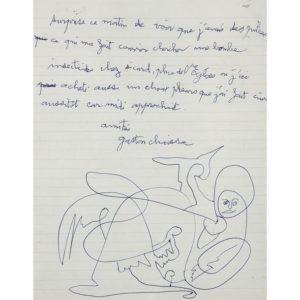 surprise ce matin de voir que j'avais des
ce qui me fait courir chercher une bombe
insecticide chez Sicard, place de l'Eglise où j'ai
acheté aussi un chou fleur que j'ai fait cuire
aussitôt car midi approchait
amitiés
gaston chaissac